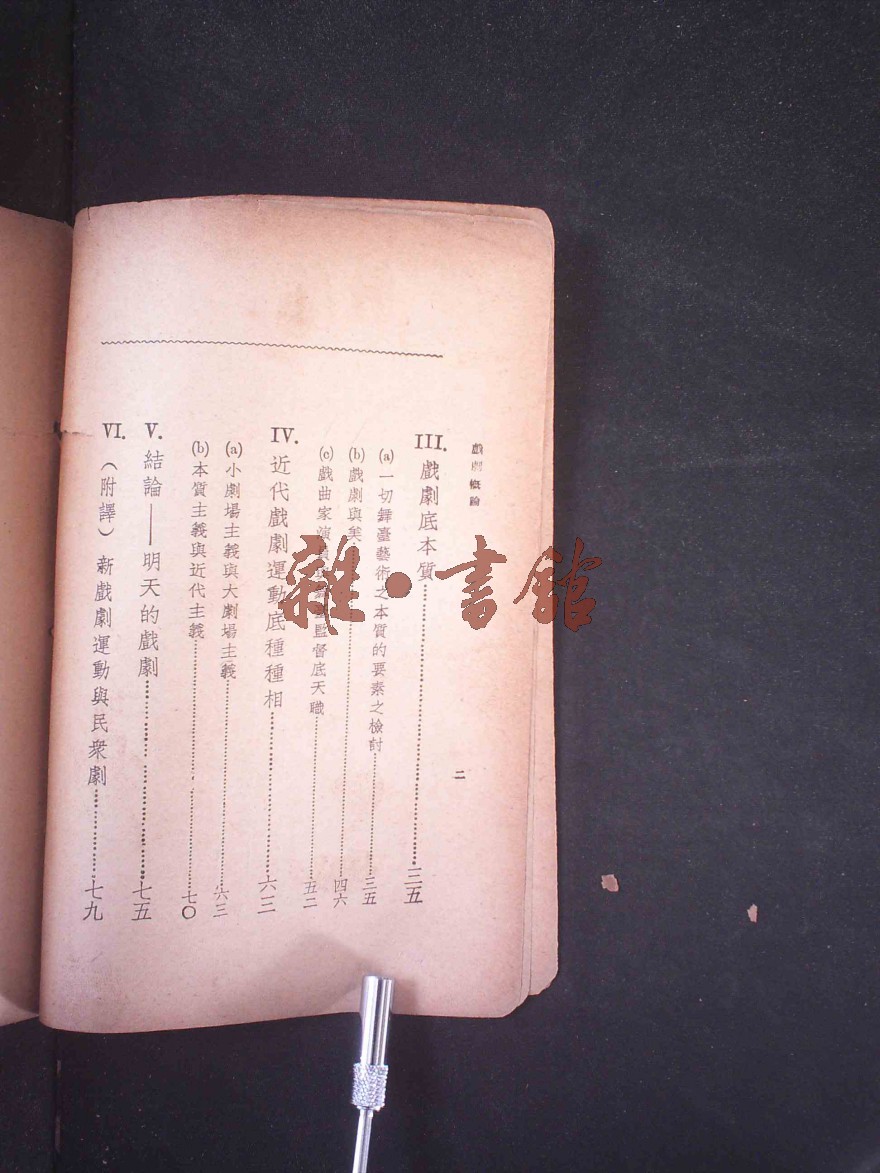 戲劇概論
二
III. 戲劇底本質……三五
(a) 一切舞臺藝術之本質的要素之檢討……三五
(b) 戲劇與美……四六
(c) 戲曲家演 監督底天職……五二
IV. 近代戲劇運動底種種相……六三
(a) 小劇場主義與大劇場主義……六三
(b) 本質主義與近代主義……七〇
V. 結論——明天的戲劇……七五
VI. (附譯) 新戲劇運動與民衆劇……七九
雜·書館